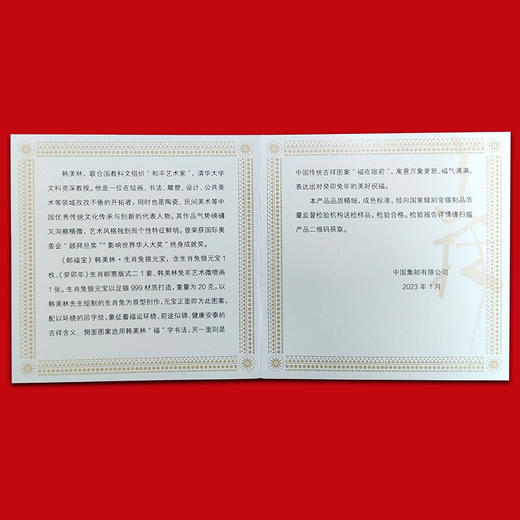 韩美林，联合国教科文组织“和平艺术家”，清华大学
文科资深教授。他是一位在绘画、书法、雕塑、设计、公共美
术等领域孜孜不倦的开拓者，同时也是陶瓷、民间美术等中
国优秀传统文化传承与创新的代表人物。其作品气势磅礴
又洞察精微，艺术风格独到而个性特征鲜明。曾荣获国际奥
委会“顾拜旦奖”“影响世界华人大奖”终身成就奖。
《邮福宝》韩美林·生肖兔银元宝，含生肖兔银元宝1
枚、《癸卯年》生肖邮票版式二1套、韩美林兔年艺术微喷画
1张。生肖银元宝以足银999材质打造，重量为20克，以
韩美林先生绘制的生肖兔为原型创作，元宝正面即为此图案，
配以环绕的回字纹，象征着福运环绕、前途似锦、健康安泰的
吉祥含义，侧面图案选用韩美林“福”字书法，另一面则是
中国传统吉祥图案“福在眼前”，寓意万象更新、福气满满，
表达出对癸卯兔年的美好祝福。
本产品品质精细，成色标准，经向国家级别金银制品质
量监督检验机构送检样品，检验合格。检验报告详情请扫描
产品二维码获取。
中国集邮有限公司
2023年1月